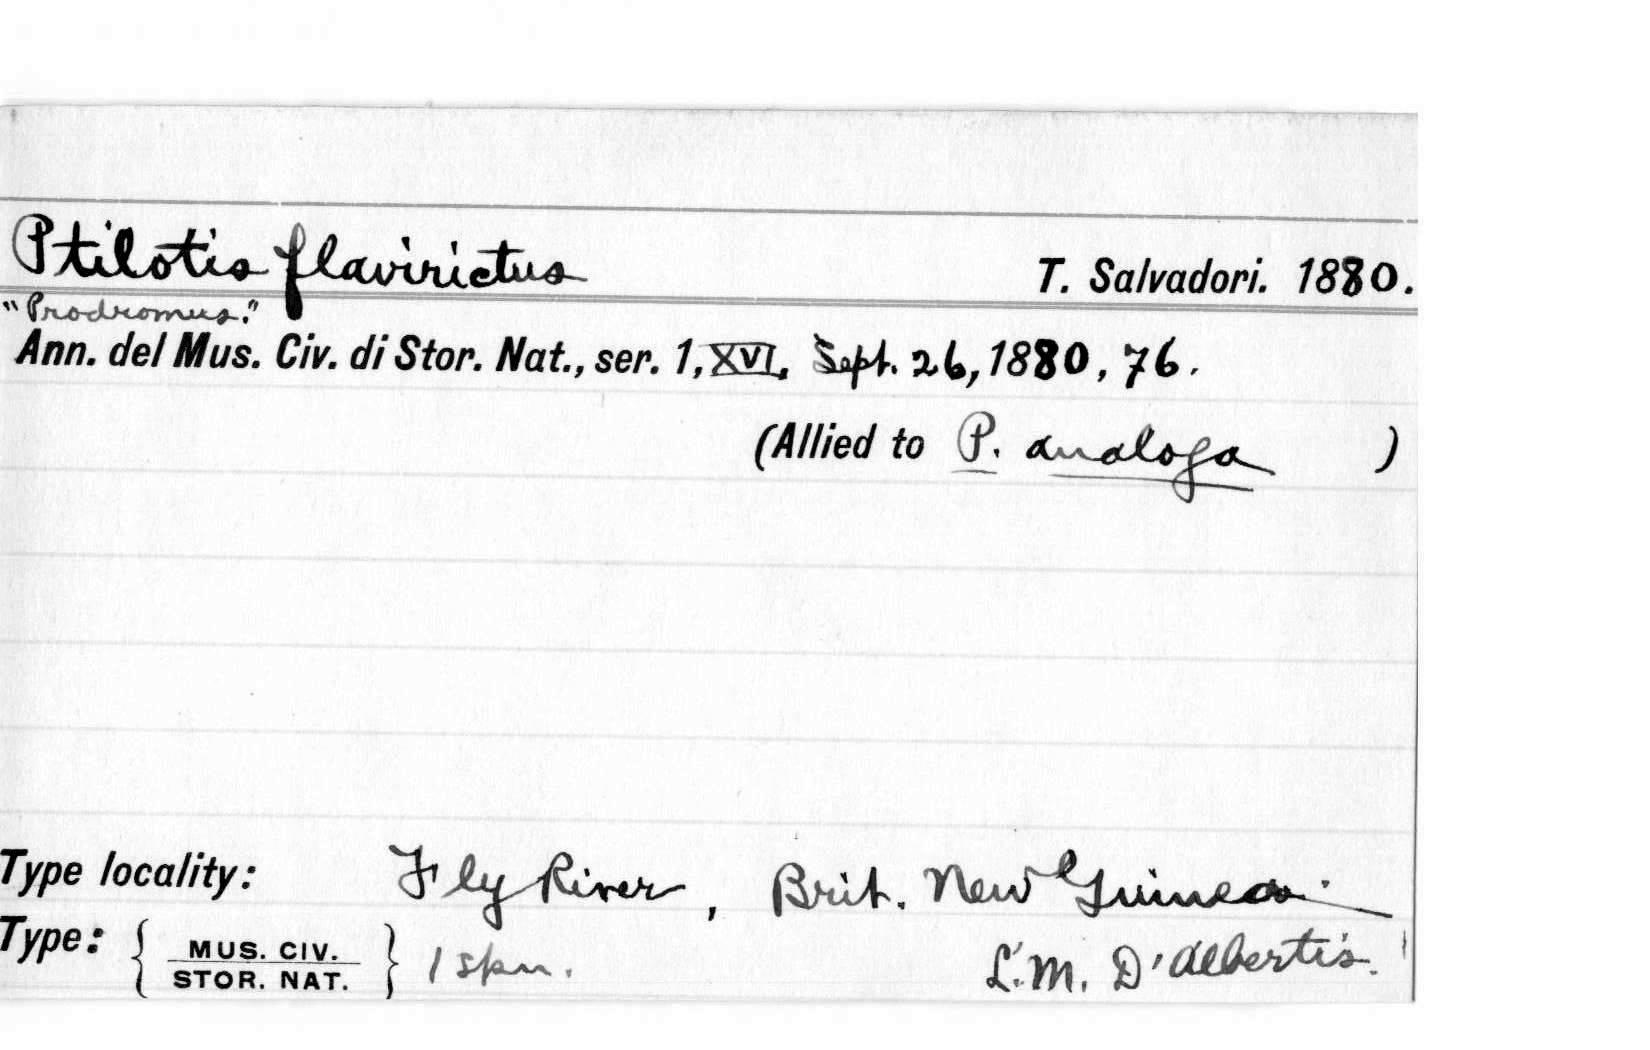 Ptilotis flavirictus T. Salvadori. 1880.
"Prodromus."
Ann. del Mus. Civ. di Stor. Nat., ser. 1, XVI, Sept. 26, 1880, 76.
(Allied to P. analoga )
Type locality: Fly River, Brit. New Guinea.
Type: { MUS. CIV. STOR. NAT. } 1 spm. L. M. D'Albertis.